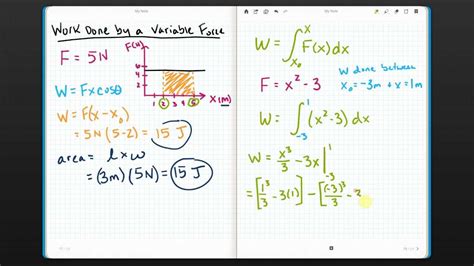 Work Done by a Variable Force
F = 5N
F(N)
6
4
2
1 2 3 4 5
X(m)
W = Fxcosθ
W = F(x-x₀)
= 5N (5-2) = 15 J
area = l x w
= (3m)(5N) = 15 J
W = ∫ₓ₀ˣ F(x)dx
F = x² - 3
W done between
x₀ = -3m + x = 1m
W = ∫₋₃¹ (x²-3) dx
W = x³/3 - 3x |₋₃¹
= [1³/3 - 3(1)] - [(-3)³/3 -